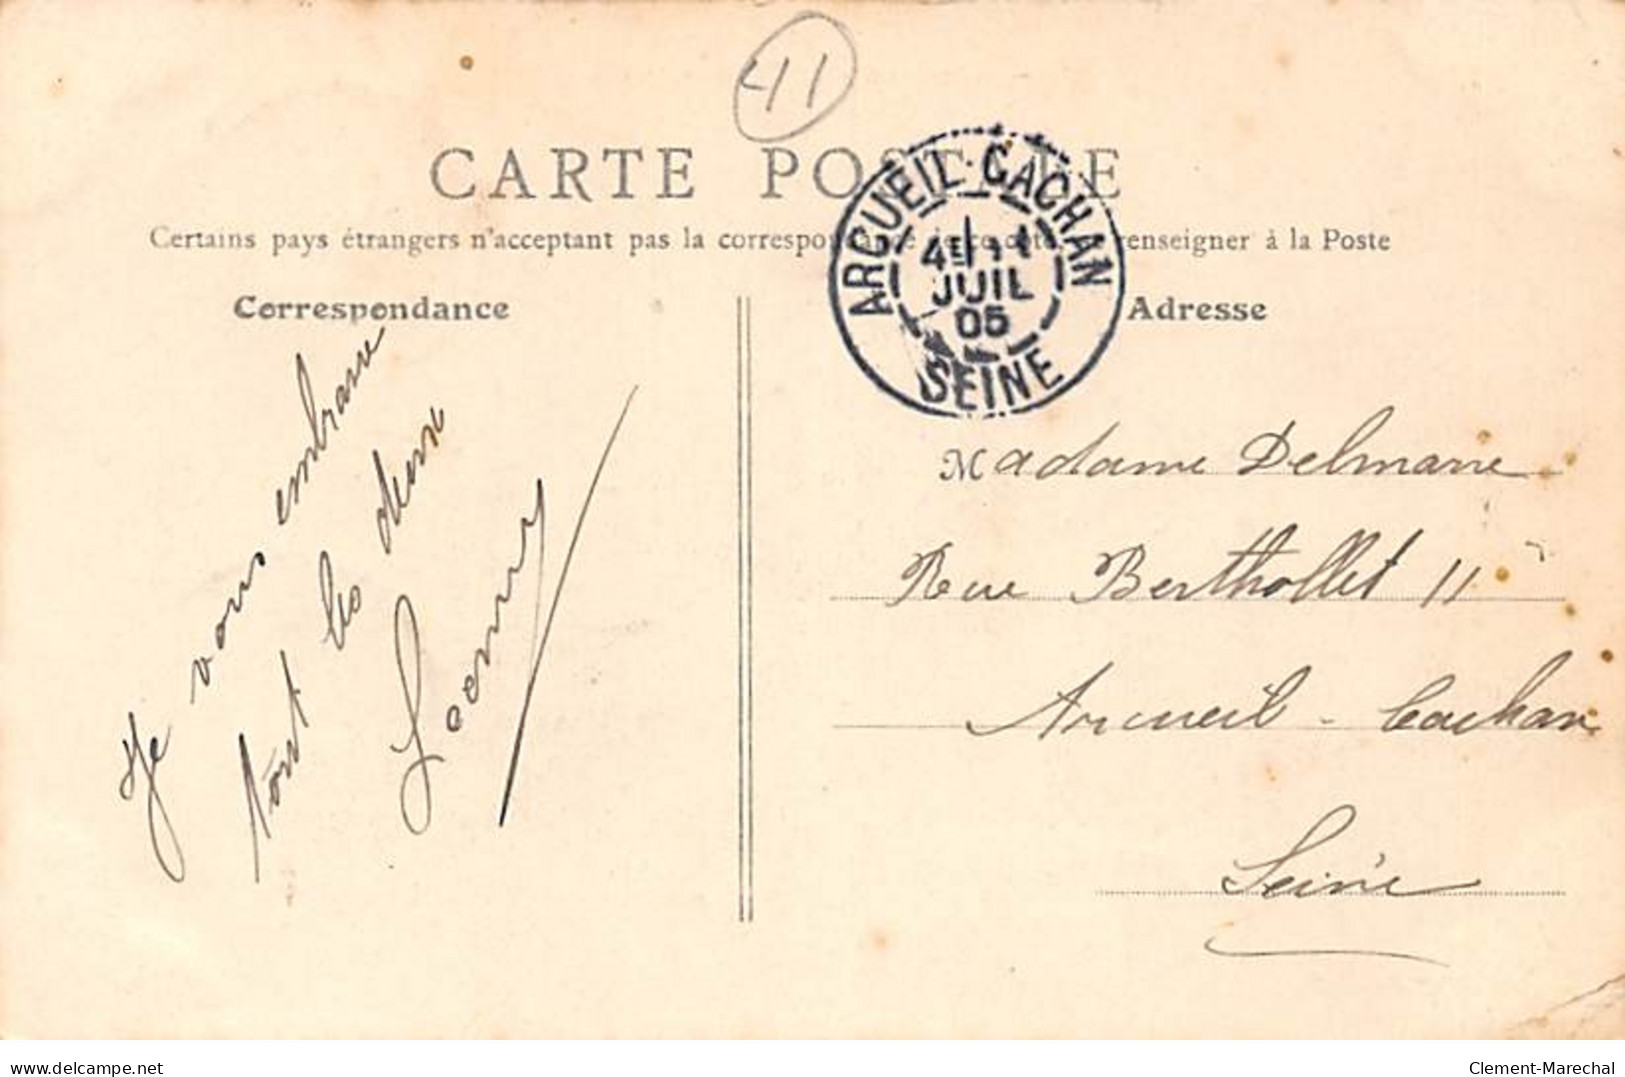 41
CARTE POSTALE
Certains pays étrangers n'acceptant pas la correspondance de ce côté, renseigner à la Poste
Correspondance
Adresse
ARCUEIL-CACHAN
4E 11
JUIL
05
SEINE
Je vous embrasse
tout les deux
Madame Delmarre
Rue Berthollet 11
Arcueil - Cachan
Seine
delcampe.net
Clement-Marechal